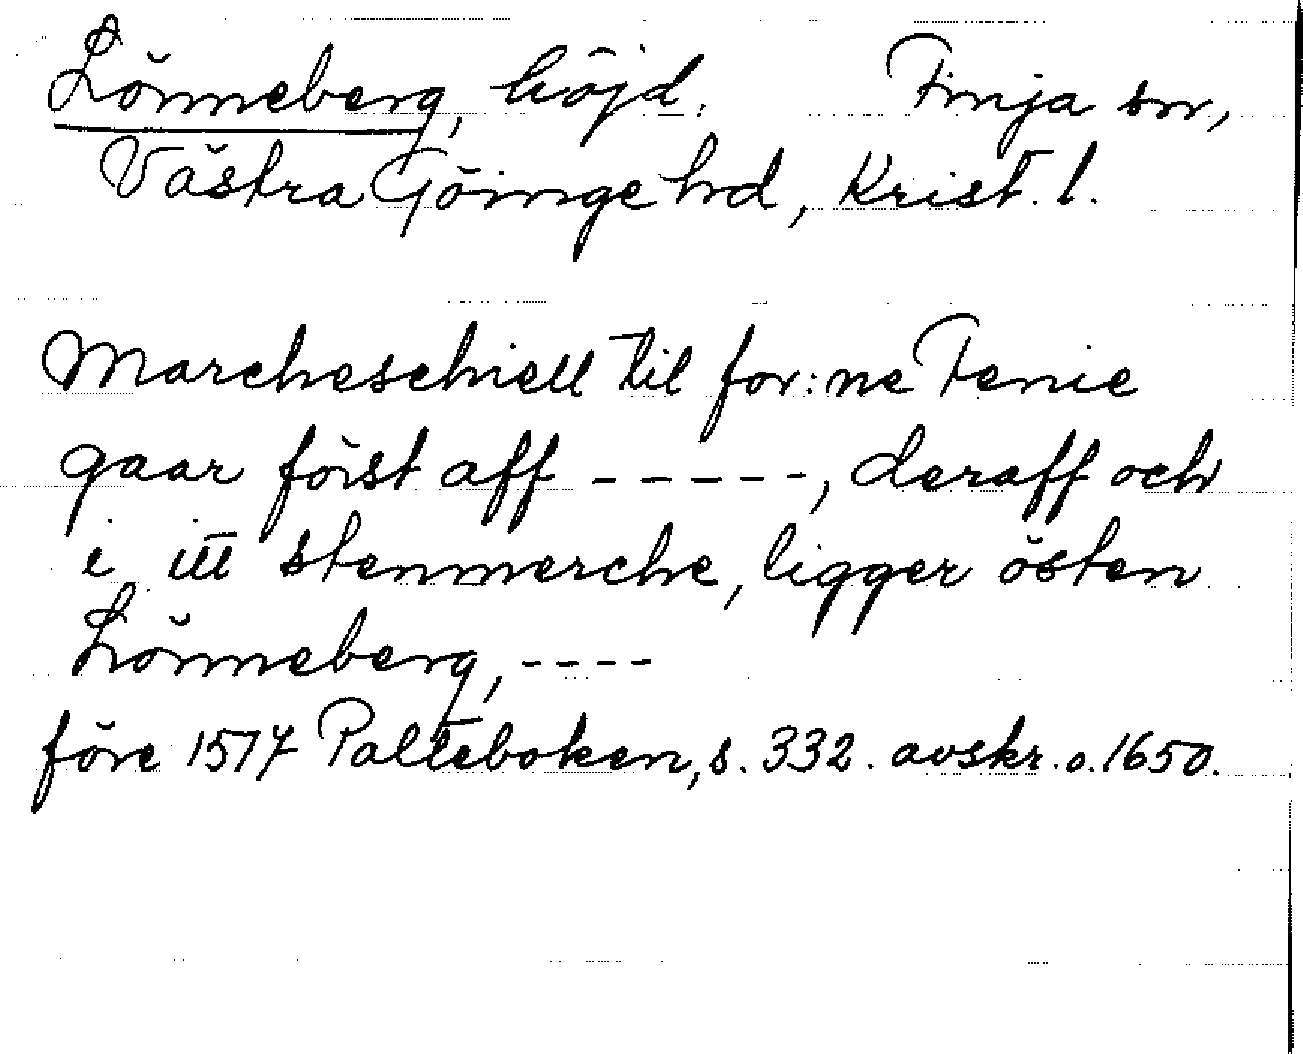 Lönneberg, höjd. Finja sn,
Västra Göinge hd, Krist. l.
Marcheschiell til for:ne Fenie
gaar först aff -----, deraff och
i iii stenmerche, ligger östen
Lönneberg, ----
före 1517 Palteboken, s. 332. avskr. o. 1650.